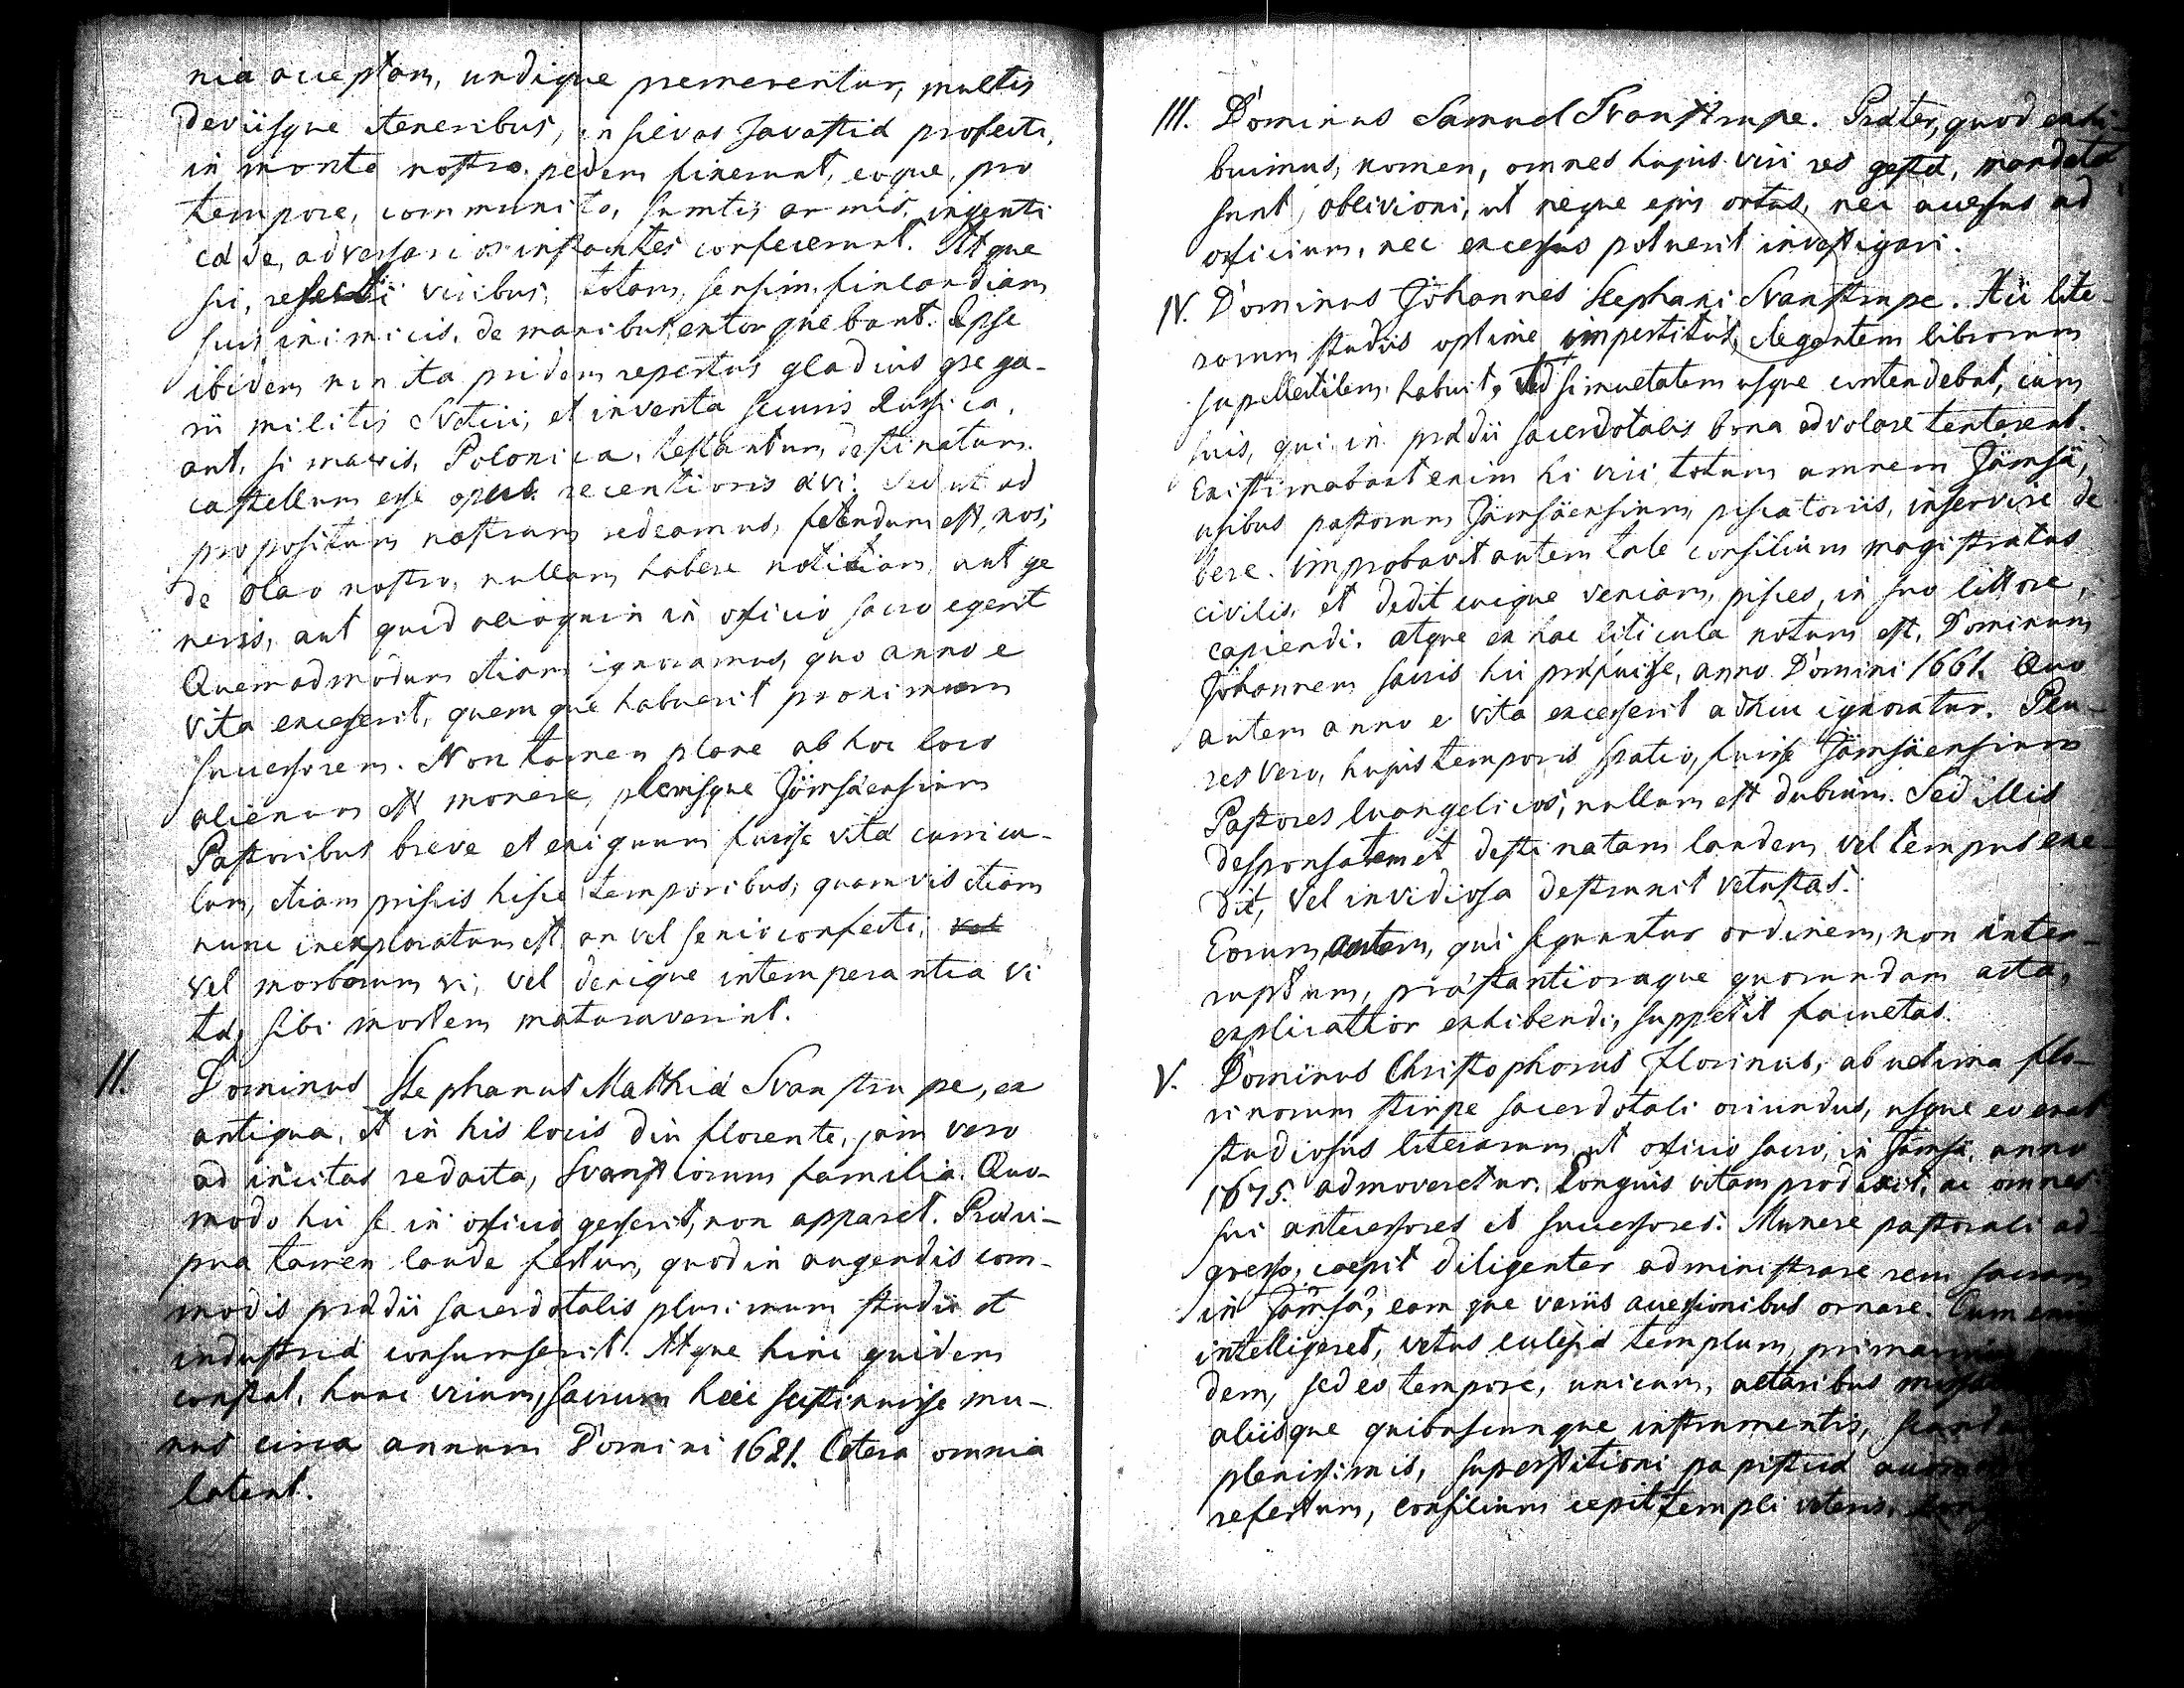 nia acceptam, undique premerentur, multis
deviisque iteneribus, in silvas Tavastiæ profecti,
in monte nostro pedem fixerunt, eoque, pro
tempore, communito, sumtis armis, ingenti
cæde, adversarios instantes confecerunt. Atque
sic, refecti viribus, totam, sensim, finlandiam
suis inimicis, de manibus, extorquebant. Ipse
ibidem non ita pridem repertus gladius grega-
rii militis Svecici, et inventa securis Russica,
aut, si mavis, Polonica, testantur, destinatum
castellum esse opus recentioris ævi. Sed ut ad
propositum nostrum redeamus, fatendum est, nos,
de Olao nostro, nullam habere notitiam, aut ge
neris, aut quid alioquin in officio sacro egerit
Quemadmodum etiam ignoramus, quo anno e
vita excesserit, quemque habuerit proximum
successorem. Non tamen plane ab hoc loco
alienum est monere, plerisque Jömsäensium
Pastoribus breve et exiguum fuisse vitæ curricu-
lum, etiam priscis hisce temporibus, quamvis etiam
nunc inexploratum est, an vel senio confecti, vel
vel morborum vi, vel denique intemperantia vi
tæ, sibi mortem maturaverint.
II. Dominus Stephanus Matthiæ Svanstrupe, ex
antiqua, et in his locis diu florente, jam vero
ad incitas redacta, Svanstiorum familia. Quo-
modo hic se in officio gesserit, non apparet. Præci-
pua tamen laude fertur, quod in augendis com-
modis prædii sacerdotalis plurimum studii et
industriæ consumserit. Atque hinc quidem
constat, hunc virum, sacrum heic sustinuisse mu-
nus circa annum Domini 1621. Cetera omnia
latent.
III. Dominus Samuel Svanstrupe. Præter, quod exhi-
buimus, nomen, omnes hujus viri res gestæ, mandatæ
sunt oblivioni, ut neque ejus ortus, nec accessus ad
officium, nec excessus potuerit investigari.
IV. Dominus Johannes Stephani Svanstrupe. Hic lite-
rarum studiis optime impertitus, elegantem librorum
supellectilem habuit, sed simultatem usque contendebat, cum
suis, qui in prædii sacerdotalis bona advolare tentarent.
Existimabant enim hi viri, totum amnem Jämsä,
usibus pastorum Jämsäensium, piscatoriis, inservire de
bere. Improbavit autem tale consilium magistratus
civilis, et dedit cuique veniam, pisces, in suo littore,
capiendi. Atque ex hac liticula notum est, Dominum
Johannem sacris hic præfuisse, anno Domini 1661. Quo
autem anno e vita excesserit adhuc ignoratur. Plu-
res vero, hujus temporis spatio, fuisse Jämsäensium
Pastores Evangelicos, nullum est dubium. Sed illis
desponsatam et destinatam laudem vel tempus exe-
dit, vel invidiosa destruxit vetustas.
Eorum autem, qui sequuntur ordinem, non inter-
ruptum, præstantioraque quorundam acta,
explicatior exhibendi, suppetit facultas.
V. Dominus Christophorus Florinus, ab ultima flo-
rinorum stirpe sacerdotali oriundus, usque eo erat
studiosus literarum, ut officio sacro, in Jämsä, anno
1675. admoveretur. Longius vitam produxit, ac omnes
sui antecessores et successores. Munere pastorali ad-
gresso, coepit diligenter administrare rem sacram
in Jämsä, eamque variis accessionibus ornare. Cum enim
intelligeret, vetus ecclesiæ templum, primarium
dem, sed eo tempore, unicum, altaribus
aliisque quibuscunque instrumentis,
plenissimis, superstitioni papisticæ
refertum, consilium cepit templi veteris,